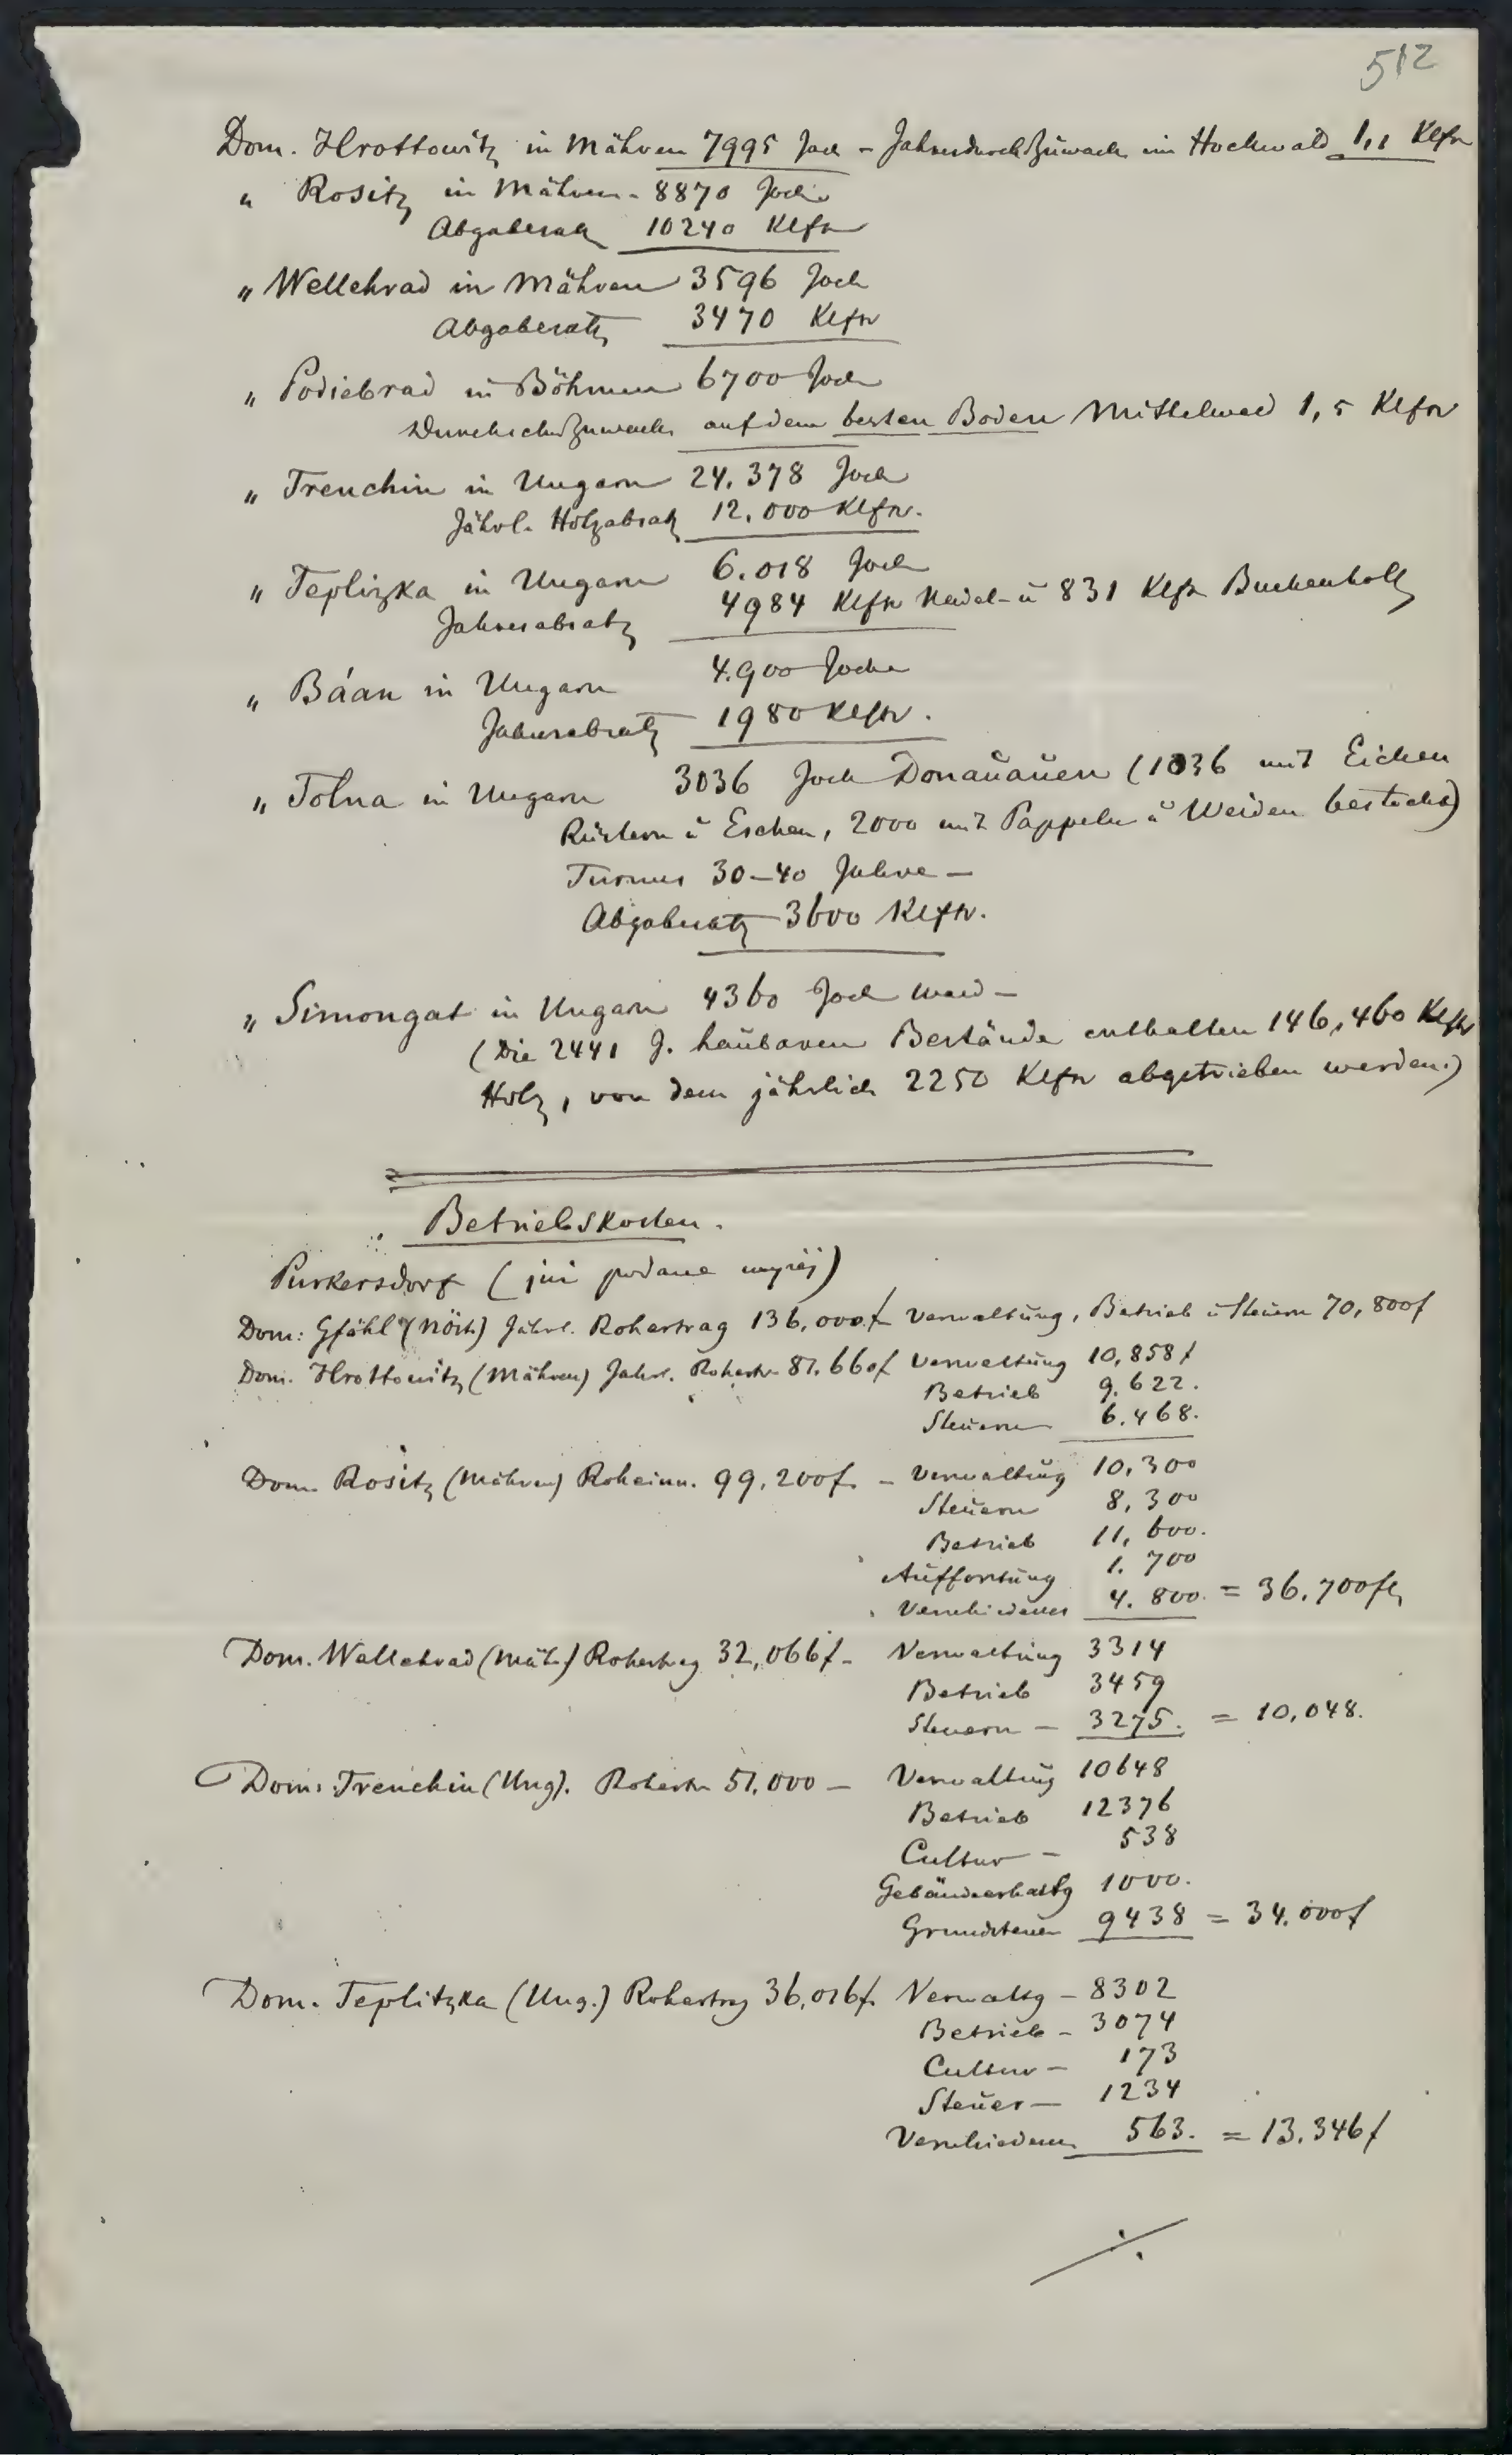 512
Dom. Hrottowitz in Mähren 7995 Joch – Jahresdurchschzuwachs im Hochwald 1,1 Klftr
" Rositz in Mähren - 8870 Joch
Abgabesatz 10240 Klftr
" Wellehrad in Mähren 3596 Joch
Abgabesatz 3470 Klftr
" Podiebrad in Böhmen 6700 Joch
Durchschzuwachs auf dem besten Boden Mittelwald 1,5 Klftr
" Trenchin in Ungarn 24.378 Joch
Jährl. Holzabsatz 12.000 Klftr.
" Teplizka in Ungarn 6.018 Joch
Jahresabsatz 4984 Klftr Nadel- u 831 Klftr Buchenholz
" Báan in Ungarn 4.900 Joche
Jahresabsatz 1980 Klftr.
" Tolna in Ungarn 3036 Joch Donauauen (1036 mit Eichen
Rüstern u Eschen, 2000 mit Pappeln u Weiden bestockt)
Turnus 30–40 Jahre –
Abgabesatz 3600 Klftr.
" Simongat in Ungarn 4360 Joch Wald –
(Die 2441 J. haubaren Bestände enthalten 146,460 Klftr
Holz, von dem jährlich 2250 Klftr abgetrieben werden.)
Betriebskosten.
Purkersdorf (już podane wyżej)
Dom: Gföhl (NÖst.) Jährl. Rohertrag 136,000 f – Verwaltung, Betrieb u Steuern 70,800 f
Dom. Hrottowitz (Mähren) Jährl. Rohertr 87.660 f Verwaltung 10,858 f
Betrieb 9.622.
Steuern 6.468.
Dom. Rositz (Mähren) Roheinn. 99,200 f. – Verwaltung 10,300
Steuern 8,300
Betrieb 11,600.
Aufforstung 1.700
Verschiedenes 4.800. = 36.700 fl
Dom. Wellehrad (Mäh.) Rohertrag 32,066 f – Verwaltung 3314
Betrieb 3459
Steuern – 3275. = 10,048.
Dom. Trenchin (Ung). Rohertr 51.000 – Verwaltung 10648
Betrieb 12376
Cultur – 538
Gebäudeerhaltg 1000.
Grundsteuer 9438 = 34.000 f
Dom. Teplitzka (Ung.) Rohertrag 36,016 f. Verwaltg – 8302
Betrieb – 3074
Cultur – 173
Steuer – 1234
Verschieden 563. = 13.346 f
./.